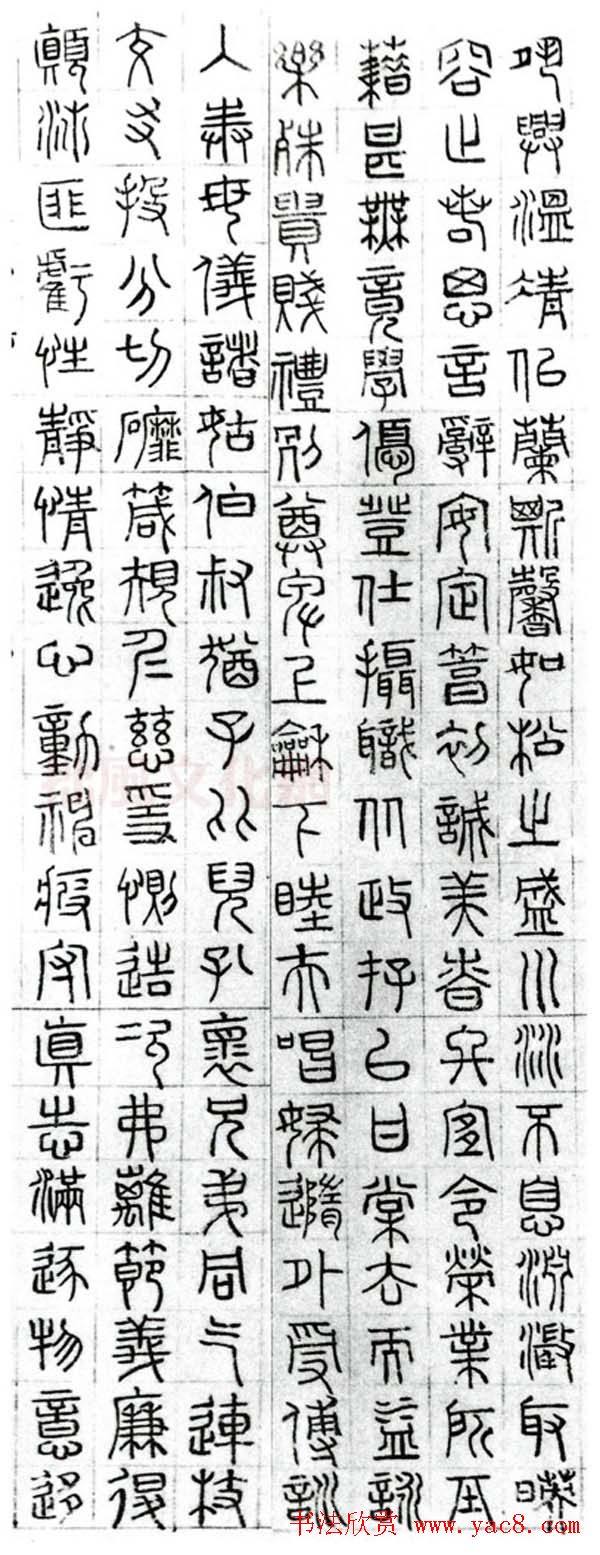 夙興溫凊似蘭斯馨如松之盛川流不息淵澄取暎
容止若思言辭安定篤初誠美慎終宜令榮業所基
藉甚無竟學優登仕攝職從政存以甘棠去而益詠
樂殊貴賤禮別尊卑上龢下睦夫唱婦隨外受傅訓
入奉母儀諸姑伯叔猶子比兒孔懷兄弟同气連枝
交友投分切磨箴規仁慈隱惻造次弗離節義廉退
顛沛匪虧性靜情逸心動神疲守真志滿逐物意移
书法欣赏 www.yac8.com